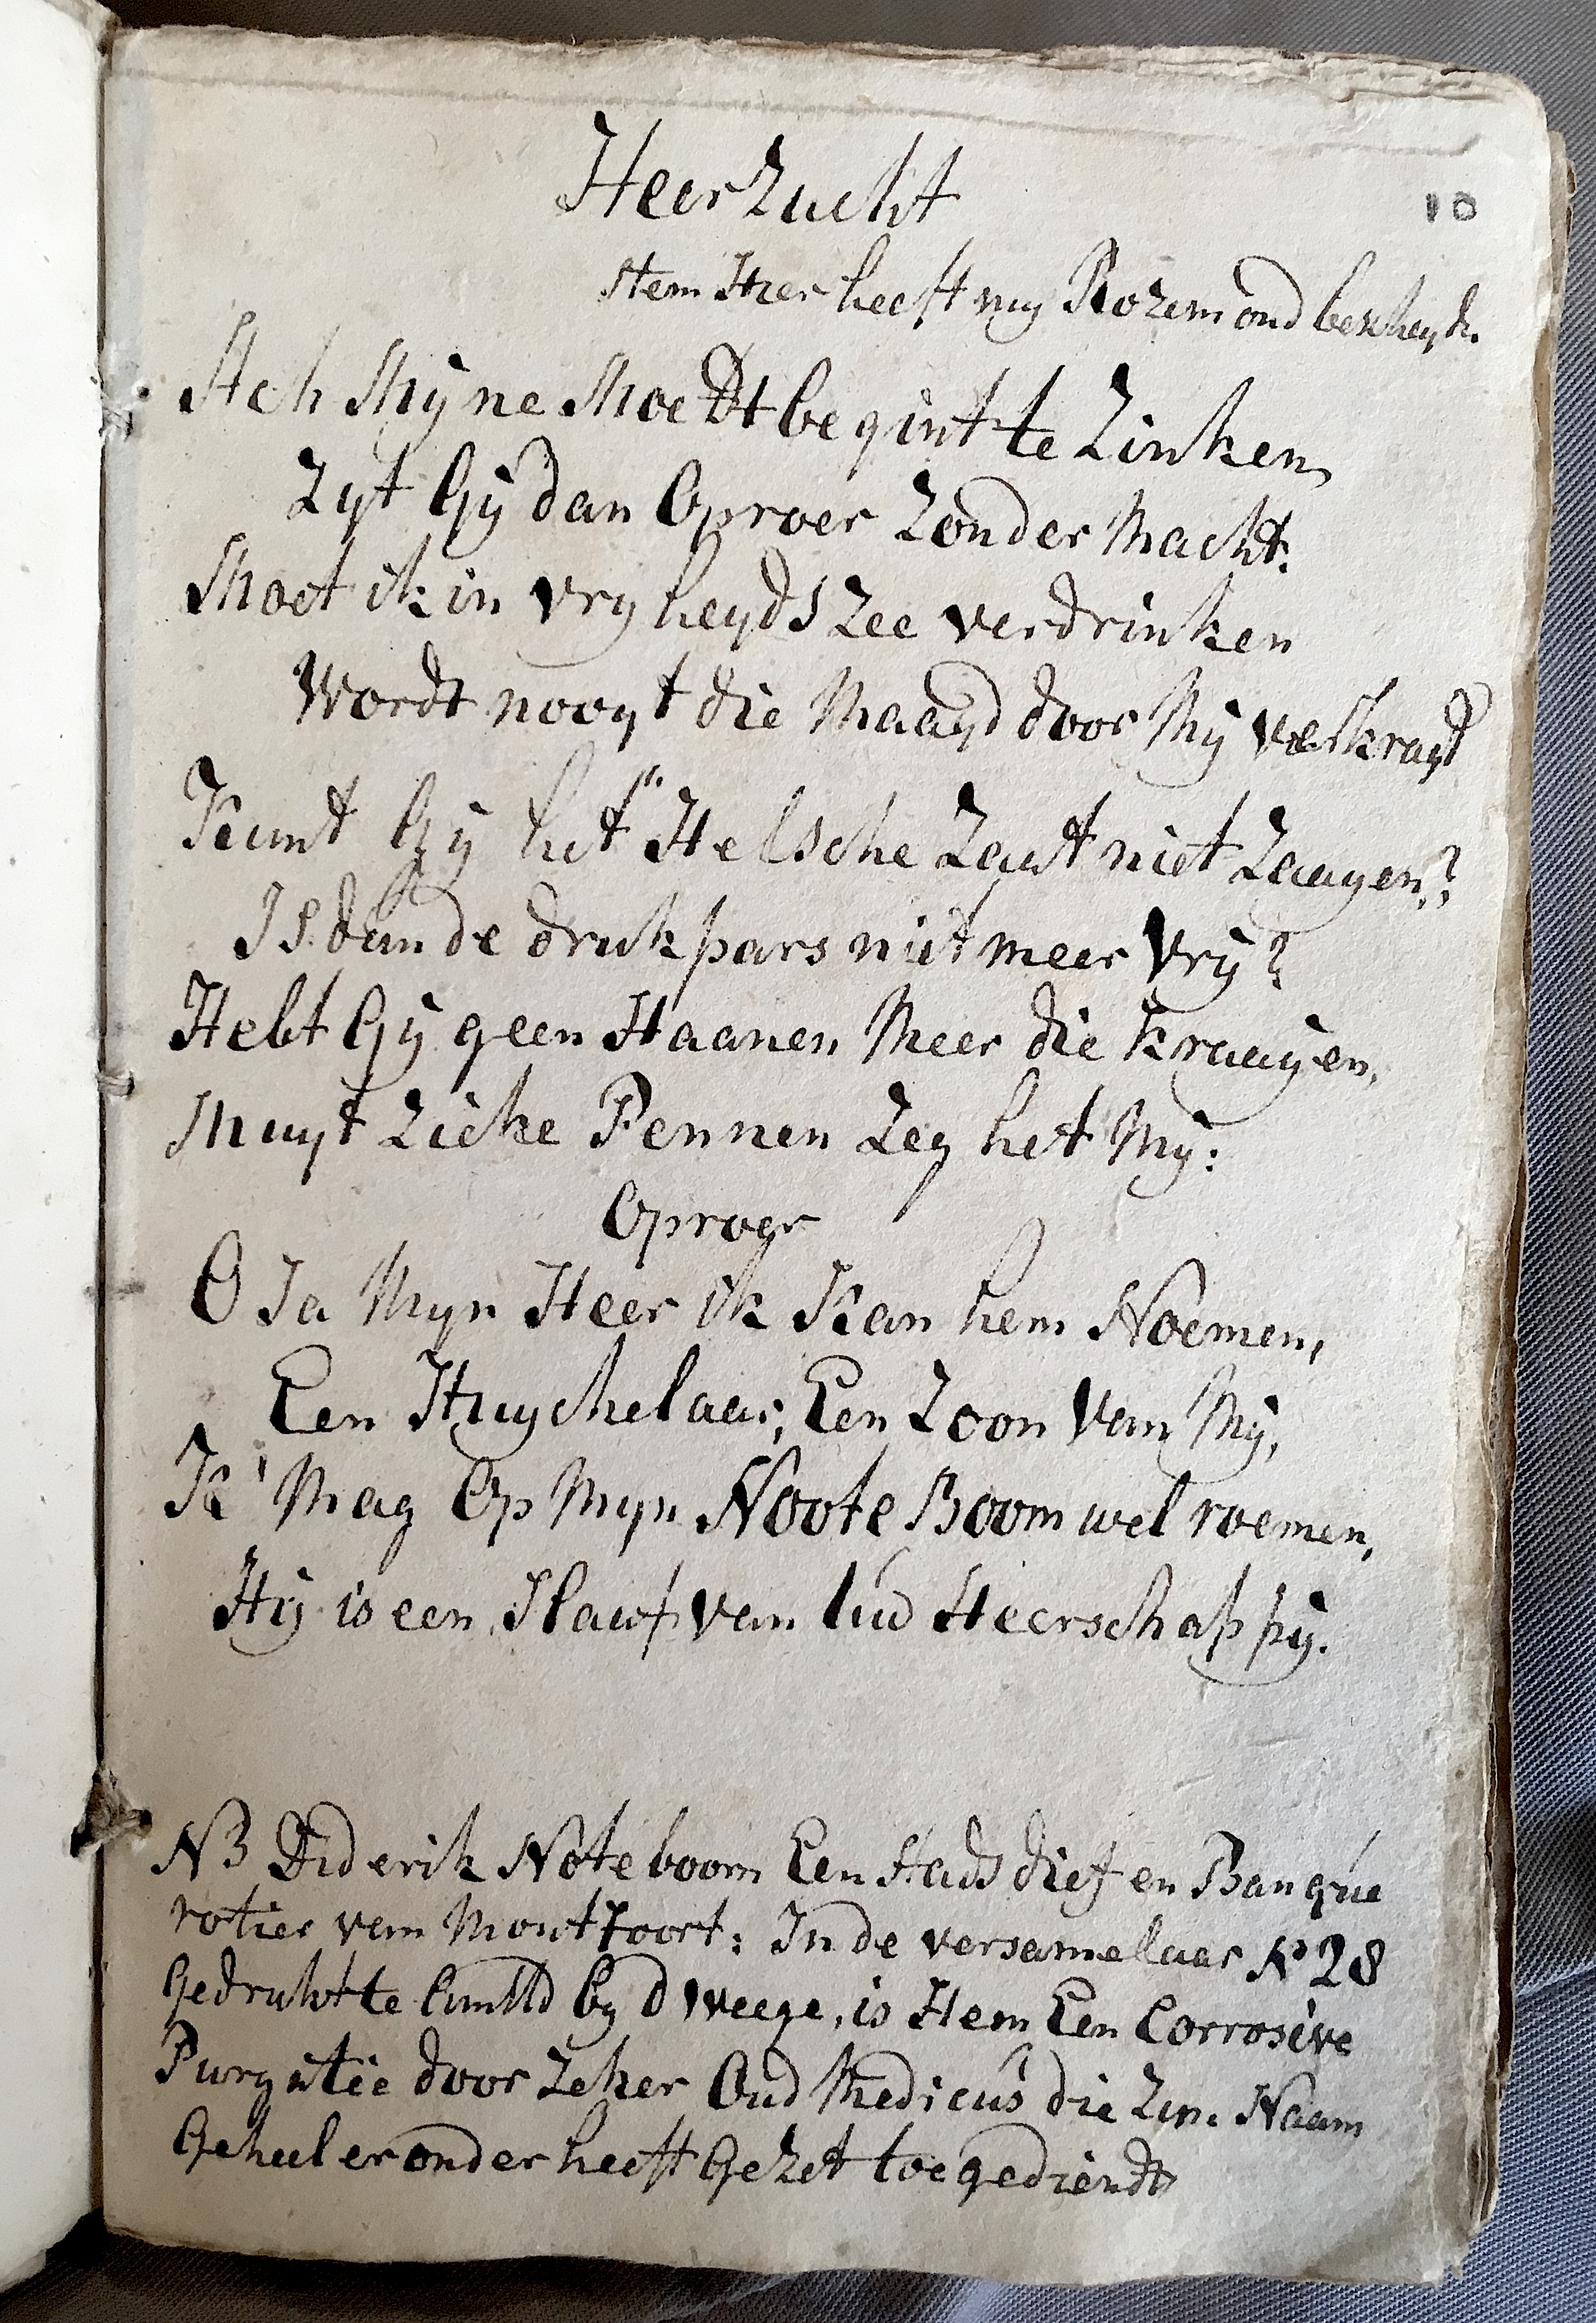 Heerzucht
10
stem Hier heeft my Rozemond bescheyd.
Ach Myne Moedt begint te Zinken,
Zyt Gÿ dan Oproer Zonder Macht.
Moet ik in vryheyds Zee verdrinken
Wordt nooyt die Maagd door Mÿ verkragt
Kunt Gÿ het Helsche Zaut niet Zaayen?
Is dan de drukpars niet meer Vrÿ?
Hebt Gÿ geen Haanen Meer die kraayen,
Muyt Zieke Pennen Zeg het Mÿ:
Oproer
O Ja Myn Heer ik Kan hem Noemen,
Een Huychelaar, Een Zoon van Mÿ,
K' Mag Op Myn Noote Boom wel roemen,
Hÿ is een Slaaf van Uw Heerschappÿ.
NB Diderik Noteboom Een Stads dief en Banque
rotier van Montfoort: In de versamelaar No 28
Gedrukt te by d Weege, is Hem Een Corrosive
Purgatie door Zeker Oud Medicus die Zyn Naam
Geheel er onder heeft Gezet toegediendt